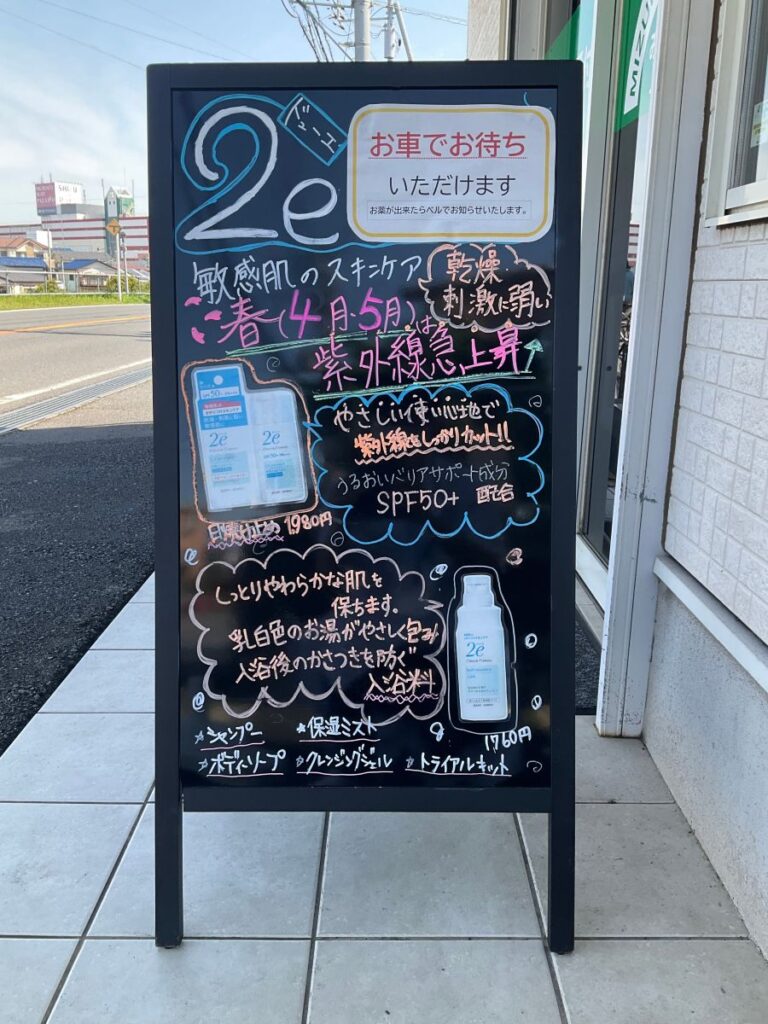 2e
ドゥーエ
お車でお待ち
いただけます
お薬が出来たらベルでお知らせいたします。
敏感肌のスキンケア
乾燥
刺激に弱い
春(4月・5月)は
紫外線急上昇
やさしい使い心地で
紫外線をしっかりカット!!
うるおいバリアサポート成分
SPF50+ 配合
2e
2e
日焼け止め 1,980円
しっとりやわらかな肌を
保ちます。
乳白色のお湯がやさしく包み
入浴後のかさつきを防ぐ
入浴料
2e
1760円
シャンプー
保湿ミスト
ボディソープ
クレンジングジェル
トライアルキット
MIZU